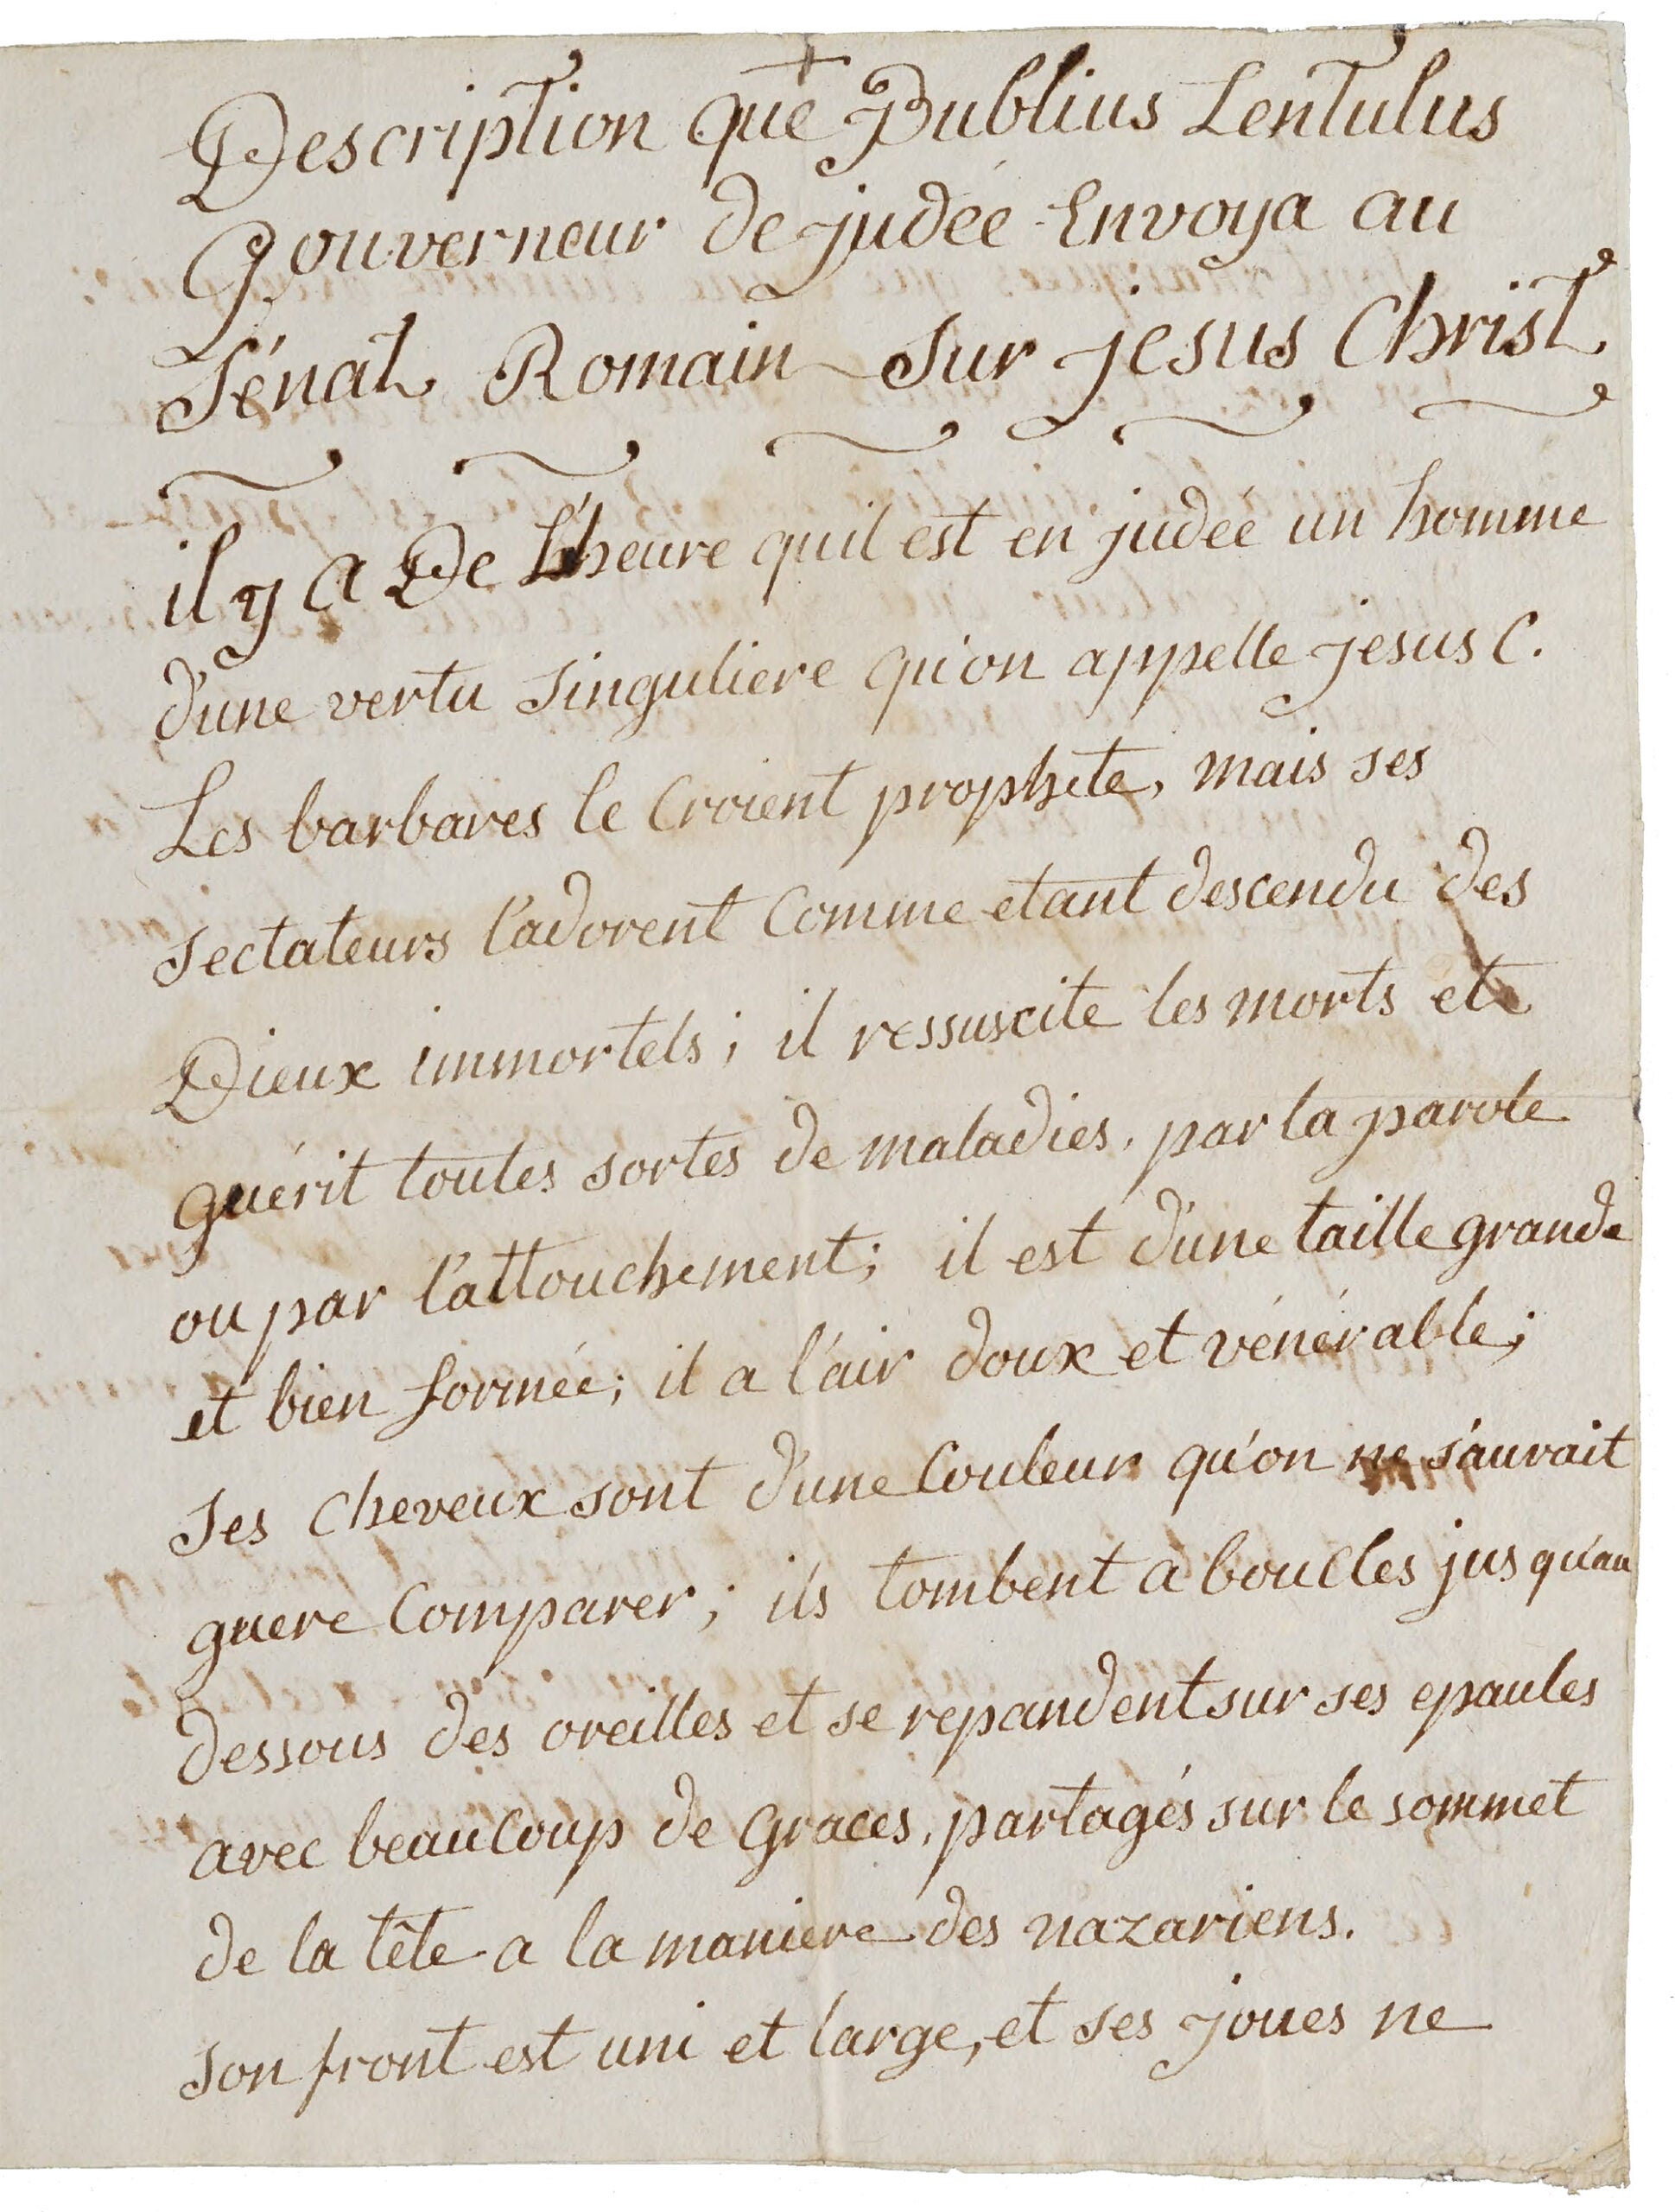 Description que Publius Lentulus
Gouverneur de judée Envoya au
Sénat Romain Sur jesus Christ
il y a De L'heure quil est en judée un homme
d'une vertu singuliere qu'on appelle jesus C.
Les barbares le Croient prophete, mais ses
sectateurs l'adorent Comme etant descendu des
Dieux immortels; il ressuscite les morts et
guérit toutes sortes de maladies, par la parole
ou par l'attouchement; il est d'une taille grande
et bien formée; il a l'air doux et vénérable;
ses cheveux sont d'une Couleur qu'on ne s'aurait
guere Comparer; ils tombent a boucles jusqu'au
dessous des oreilles et se repandent sur ses epaules
avec beauCoup de Graces, partagés sur le sommet
de la tête a la maniere des nazariens.
son front est uni et large, et ses joues ne